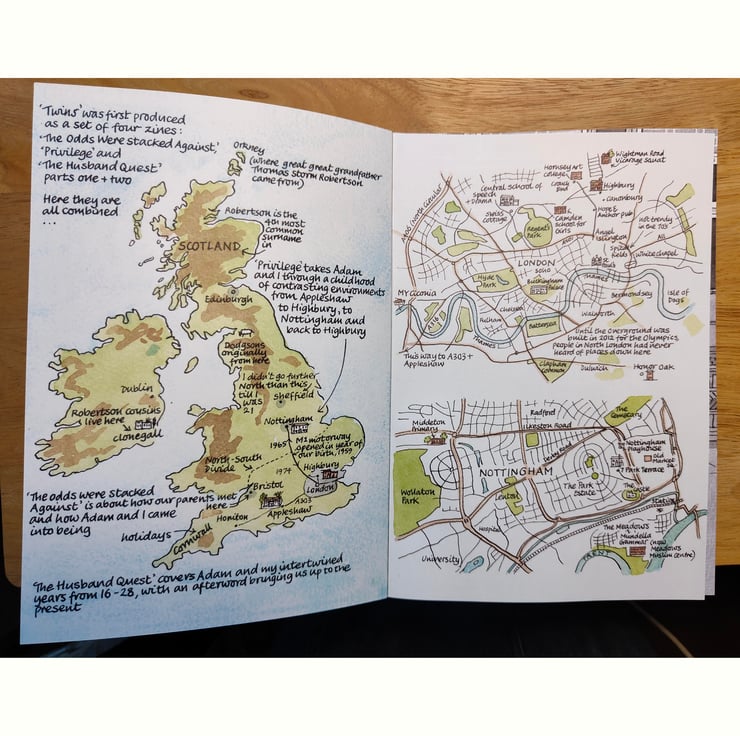 'Twins' was first produced
as a set of four zines:
'The Odds Were stacked Against,'
'Privilege' and
'The Husband Quest'
parts one + two
Here they are
all combined
...
Orkney
(where great great grandfather
Thomas Storm Robertson
came from)
Robertson is the
4th most
common
surname
in
SCOTLAND
'Privilege' takes Adam
and I through a childhood
of contrasting environments
from Appleshaw
to Highbury, to
Nottingham and
back to Highbury
Edinburgh
Dodgsons
originally
from here
I didn't go further
North than this
till I
was
21
Sheffield
Dublin
Robertson cousins
live here
Clonegall
Nottingham
1965
M1 motorway
opened in year of
our birth, 1959
North-South
Divide
1974
Highbury
London
Bristol
A303
Appleshaw
Honiton
Cornwall
holidays
'The odds were stacked
Against' is about how our parents met
and how Adam and I came
here
into being
'The Husband Quest' covers Adam and my intertwined
years from 16-28, with an afterword bringing us up to the
present
Wightman Road
Vicarage squat
Hornsey Art
College
Crouch
End
Highbury
Central School of
Speech
+ Drama
Canonbury
Swiss
Cottage
Hope &
Anchor pub
Camden
School for
Girls
Regent's
Park
Angel
Islington
not trendy
in the 70s
A406 North Circular
Spital
fields
Whitechapel
LONDON
SOHO
Hyde
Park
Buckingham
Palace
Thames
MY ciconia
Bermondsey
Isle of
Dogs
Chelsea
Fulham
Walworth
Battersea
A316
Thames
Until the overground was
built in 2012 for the Olympics
people in North London had never
heard of places down here
This way to A303 +
Appleshaw
Clapham
Common
Dulwich
Honor Oak
Middleton
Primary
Radford
Ilkeston Road
The
Cemetary
Derby Road
Nottingham
Playhouse
Old
Market
Sq
7 Park Terrace
NOTTINGHAM
The Park
Estate
Lenton
The
Castle
Wollaton
Park
Station
Hospital
The Meadows
Mundella
Grammar (now
Meadows
Muslim Centre)
University
TRENT